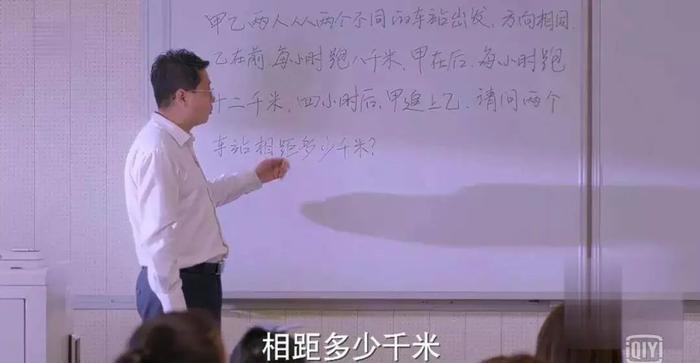 甲乙两人从两个不同的车站出发，方向相同.
乙在前，每小时跑八千米，甲在后，每小时跑
十二千米，四小时后，甲追上乙，请问两个
车站相距多少千米？
相距多少千米
iQIYI